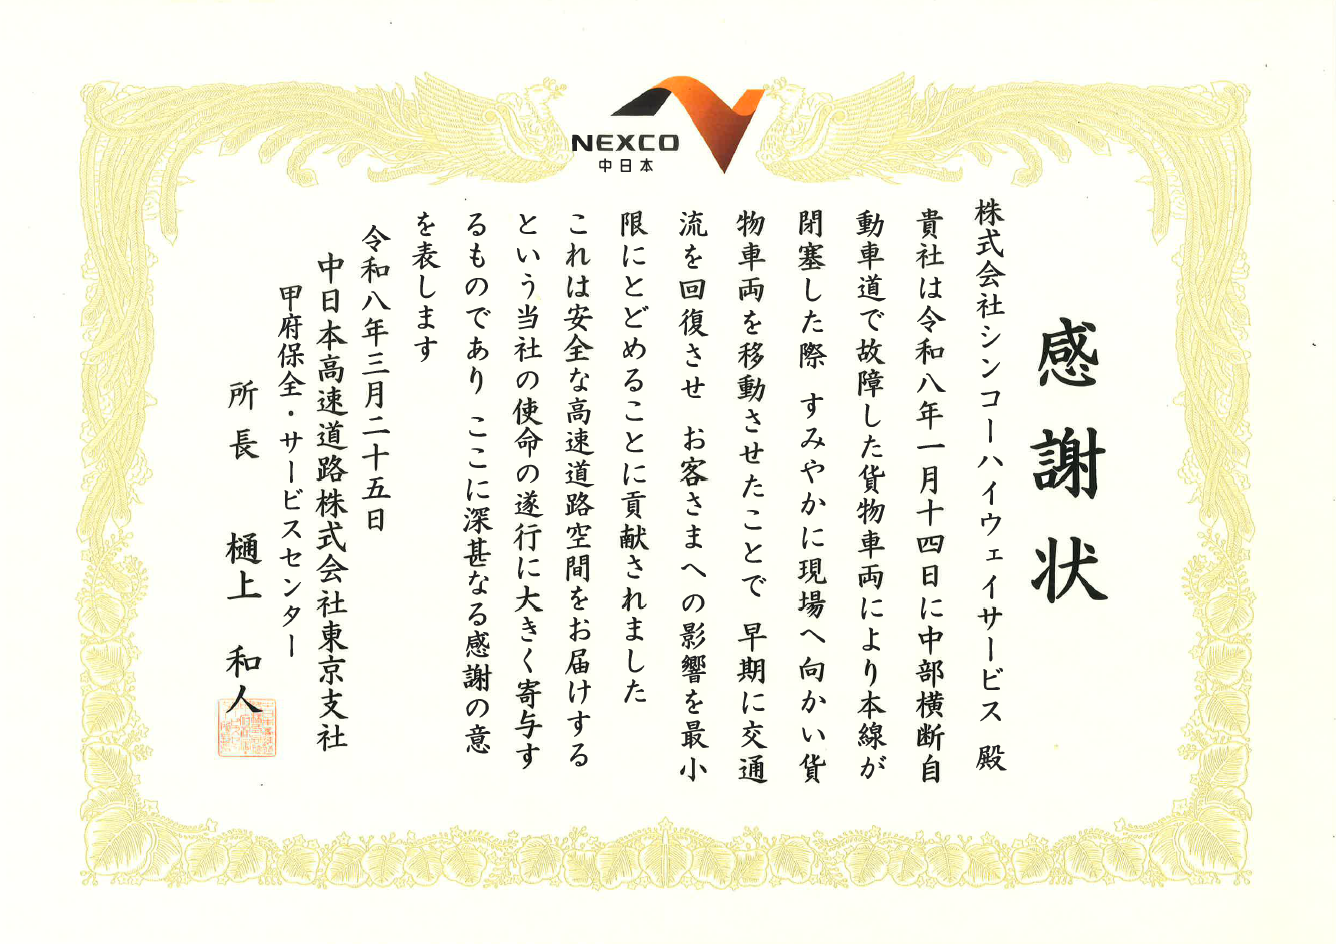 NEXCO
中日本
感謝状
株式会社シンコーハイウェイサービス 殿
貴社は令和八年一月十四日に中部横断自
動車道で故障した貨物車両により本線が
閉塞した際 すみやかに現場へ向かい貨
物車両を移動させたことで 早期に交通
流を回復させ お客さまへの影響を最小
限にとどめることに貢献されました
これは安全な高速道路空間をお届けする
という当社の使命の遂行に大きく寄与す
るものであり ここに深甚なる感謝の意
を表します
令和八年三月二十五日
中日本高速道路株式会社東京支社
甲府保全・サービスセンター
所長 樋上 和人